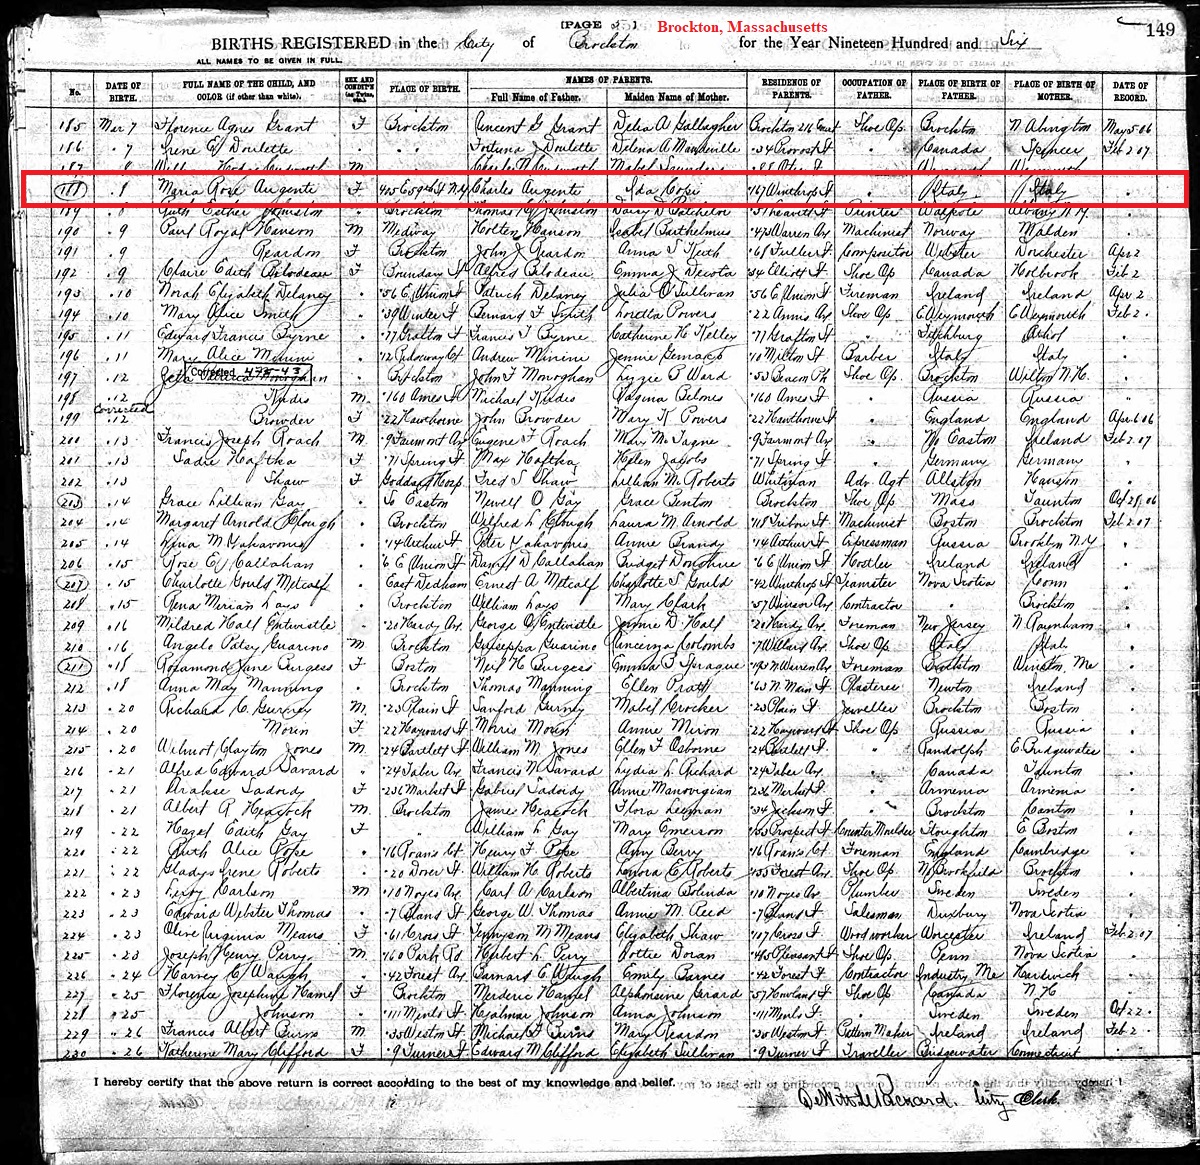 [PAGE 2]
Brockton, Massachusetts
149
BIRTHS REGISTERED in the City of Brockton for the Year Nineteen Hundred and Six
ALL NAMES TO BE GIVEN IN FULL.
No. DATE OF BIRTH. FULL NAME OF THE CHILD, AND COLOR (if other than white). SEX AND CONDIT'N (as Twins, etc.) PLACE OF BIRTH. NAMES OF PARENTS. Full Name of Father. Maiden Name of Mother. RESIDENCE OF PARENTS. OCCUPATION OF FATHER. PLACE OF BIRTH OF FATHER. PLACE OF BIRTH OF MOTHER. DATE OF RECORD.
185 Mar 7 Florence Agnes Grant F Brockton Vincent G Grant Delia A Gallagher Brockton Shoe Op. Brockton N Abington May 5 06
186 " 7 Irene Doulette " " Fortuna Doulette Delena A Mandeville 54 Provost St " Canada Spencer Feb 2 07
187 " 8 M Mabel Saunders
188 " 8 Maria Rose Augente F 405 E 59th St N.Y. Charles Augente Ida Copi 167 Winthrop St " Italy Italy "
189 " 8 Ruth Esther Johnston " Brockton Thomas Johnston Daisy D Batchelor 51 Leavitt St Printer Walpole Albany N.Y. "
190 " 9 Paul Royal Hanson M Medway Holten Hanson Isabel Barthelmus 43 Warren Av Machinist Norway Malden "
191 " 9 Reardon F Brockton John J Reardon Anna S Keith 68 Fuller St Compositor Webster Dorchester Apr 2
192 " 9 Claire Edith Bilodeau F Boundary St Alfred Bilodeau Emma J 54 Elliott St Shoe Op Canada Holbrook Feb 2
193 " 10 Norah Elizabeth Delaney " 56 E Union St Patrick Delaney Julia O'Sullivan 56 E Union St Fireman Ireland Ireland Apr 2
194 " 10 Mary Alice Smith " 39 Winter St Bernard F Smith Loretta Powers 22 Annis Av Shoe Op E Weymouth E Weymouth Feb 2
195 " 11 Edward Francis Byrne " 77 Grafton St Francis T Byrne Catherine H Kelley 77 Grafton St " Fitchburg Athol "
196 " 11 Mary Alice Minini " 12 Ridgeway Ct Andrew Minini Jennie 10 Milton St Barber Italy Italy "
Corrected 475-43
197 " 12 Monoghan " Brockton John F Monoghan Lizzie B Ward 53 Beacon Pk Shoe Op. Brockton Wilton N.H. "
198 " 12 M 160 Ames St Michael 160 Ames St " Russia Russia "
Corrected
199 " 12 Browder F 22 Hawthorne John Browder Mary K Powers 22 Hawthorne St " England England Apr 6 06
200 " 13 Francis Joseph Roach M 9 Fairmont Av Eugene F Roach Mary McTagne 9 Fairmont Av " No Easton Ireland Feb 2 07
201 " 13 Sadie Haftka F 71 Spring St Max Haftka Helen Jacobs 71 Spring St " Germany Germany "
202 " 13 Shaw F Goddard Hosp. Fred S Shaw Lillian M. Roberts Whitman Adv. Agt Allston Hanson "
203 " 14 Grace Lillian Gay " So Easton Newell O Gay Grace Benton Brockton Shoe Op. Mass Taunton Oct 29, 06
204 " 14 Margaret Arnold Clough " Brockton Wilfred L Clough Laura M. Arnold 118 Tribou St Machinist Boston Brockton Feb 2 07
205 " 14 Lena M Yahavonis " 14 Arthur St Peter Yahavonis Annie Brandy 14 Arthur St Expressman Russia Brooklyn N.Y "
206 " 15 Rose E Callahan " 6 E Union St David D Callahan Bridget Donohue 6 E Union St Hostler Ireland Ireland "
207 " 15 Charlotte Gould Metcalf " East Dedham Ernest A Metcalf Charlotte S Gould 42 Winthrop St Teamster Nova Scotia Conn "
208 " 15 Rena Merian Lays " Brockton William Lays Mary Clark 57 Winson Av Contractor " Brockton "
209 " 16 Mildred Hall Entwistle " 20 Hardy Av. George O. Entwistle Jennie D. Hall 20 Hardy Av. Foreman New Jersey N Raynham "
210 " 16 Angelo Patsy Guarino M Brockton Guiseppa Guarino Vincenza Colombo 7 Willard Av Shoe Op. Italy Italy "
211 " 18 Rosamond Jane Burgess F Boston Neil H Burgess Emma B Sprague N Warren Av Foreman Brockton Winslow Me "
212 " 18 Anna May Manning " Brockton Thomas Manning Ellen Pratt 63 N Main St Plasterer Newton Ireland "
213 " 20 Richard C. Gurney M. 23 Plain St Sanford Gurney Mabel Crocker 23 Plain St Jeweller Brockton Boston "
214 " 20 Morin F 22 Hayward St Morris Morin Annie Miron 22 Hayward St Shoe Op Russia Russia "
215 " 20 Wilmot Clayton Jones M. 24 Bartlett St William M. Jones Ellen F Osborne 24 Bartlett St " Randolph E. Bridgewater "
216 " 21 Alfred Edward Savard " 24 Taber Av. Francis N Savard Lydia L Richard 24 Taber Av. " Canada Taunton "
217 " 21 Arakse Sadoidy F 236 Market St Gabriel Sadoidy Annie Manovigian 236 Market St " Armenia Armenia "
218 " 21 Albert R Heacock M. Brockton James Heacock Flora Leeman 34 Jackson St " Brockton Canton "
219 " 22 Hazel Edith Gay F " William L Gay Mary Emerson 153 Prospect St Counter Moulder Stoughton E Boston "
220 " 22 Ruth Alice Pope " 16 Roan's Ct. Henry F Pope Amy Berry 16 Roan's Ct. Foreman England Cambridge "
221 " 22 Gladys Irene Roberts " 20 Dover St William H. Roberts Lenora E Roberts 455 Forest Av. Shoe Op. No Brookfield Brockton "
222 " 23 Leroy Carlson M 110 Noyes Av. Carl A Carlson Albertina Belinda 110 Noyes Av Plumber Sweden Sweden "
223 " 23 Edward Webster Thomas " 7 Blans St George W. Thomas Annie M. Reed 7 Blans St Salesman Duxbury Nova Scotia "
224 " 23 Olive Virginia Means F 61 Cross St Tennyson M Means Elizabeth Shaw 107 Cross St Woodworker Worcester Ireland Feb 2, 07
225 " 23 Joseph Henry Perry M. 160 Park Rd. Herbert L. Perry Lottie Doran 45 Pleasant St Shoe Op. Penn Nova Scotia "
226 " 24 Harvey C Waugh " 42 Forest Av. Barnard E Waugh Emily Barnes 42 Forest St Contractor Industry, Me Hardwick "
227 " 25 Florence Josephine Hamel F Brockton Merderic Hamel Alphonsine Gerard 57 Howland St Shoe Op Canada N.H "
228 " 25 Johnson " 111 Menlo St Hjalmar Johnson Anna Johnson 111 Menlo St " Sweden Sweden Oct 22
229 " 26 Francis Albert Burns M 35 Weston St Michael F Burns Mary Reardon 35 Weston St Pattern Maker Ireland Ireland Feb 2
230 " 26 Katherine Mary Clifford F 9 Turner St Edward M Clifford Elizabeth Sullivan 9 Turner St Traveller Bridgewater Connecticut "
I hereby certify that the above return is correct according to the best of my knowledge and belief.
DeWitt C Packard, City Clerk.